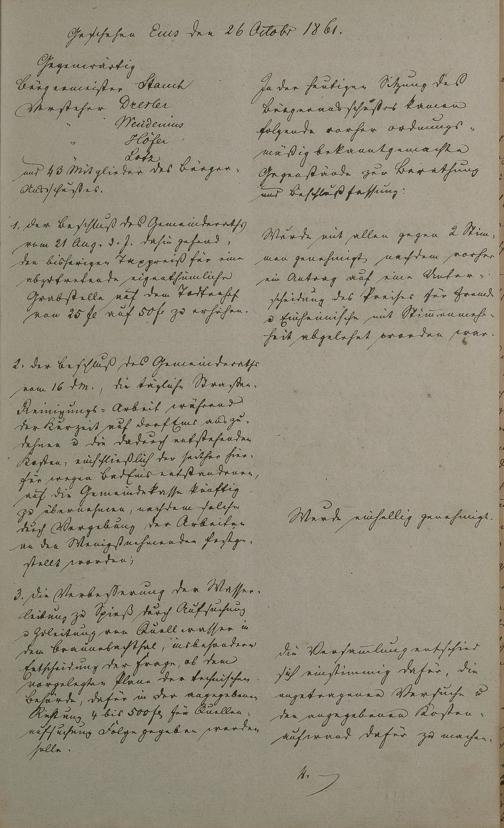 Geschehen Ems den 26 Octobr 1861.
Gegenwärtig
Bürgermeister Stamm
Vorsteher Dresler
" Wendenius
" Höfer
" Lotz
und 43 Mitglieder des Bürger-
Ausschußes.
In der heutigen Sitzung des
Bürgerausschußes kamen
folgende vorher ordnungs-
mäßig bekanntgemachte
Gegenstände zur Berathung
und Beschlußfassung:
1. der Beschluß des Gemeinderaths
vom 21 Aug. d. J. dahin gehend,
den bisherigen Taxpreiß für eine
abzutretende eigenthümliche
Grabstelle auf dem Todtenhof
von 25 fl auf 50 fl zu erhöhen.
Wurde mit allen gegen 2 Stim-
men genehmigt, nachdem vorher
ein Antrag auf eine Unter-
scheidung des Preises für Fremde
u Einheimische mit Stimmenmehr-
heit abgelehnt worden war.
2. der Beschluß des Gemeinderaths
vom 16 d.M., die tägliche Straßen-
Reinigungs-Arbeit während
der Kurzeit auf Dorf Ems auszu-
dehnen u die dadurch entstehenden
Kosten, einschließlich der seither hier-
für wegen Bad Ems entstandenen,
auf die Gemeindekasse künftig
zu übernehmen, nachdem solche
durch Vergebung der Arbeiten
an den Wenigstnehmenden festge-
stellt worden;
Wurde einhellig genehmigt.
3. die Verbesserung der Wasser-
leitung zu Spieß durch Aufsuchung
u Zuleitung von Quellwasser in
dem Braunebachthal, insbesondere
Entscheidung der Frage, ob dem
vorgelegten Plane der technischen
Behörde, dafür in der angegebenen
Richtung 4 bis 500 fl für Quellen-
aufsuchung Folge gegeben werden
solle.
die Versammlung entschied
sich einstimmig dafür, die
angetragenen Versuche u
den angegebenen Kosten-
aufwand dafür zu machen.
4.